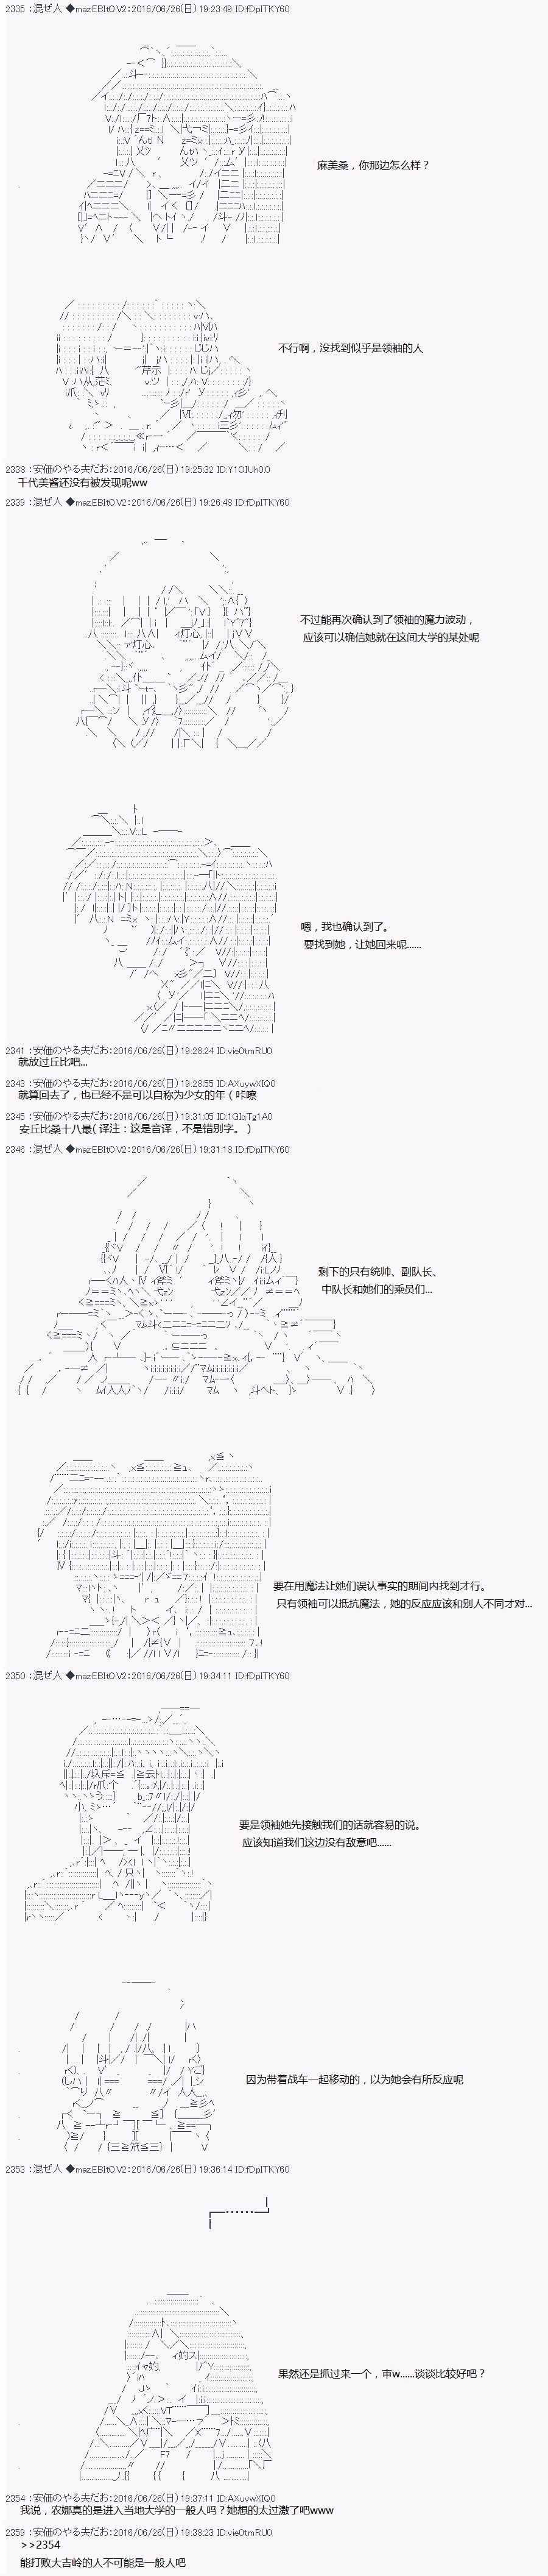 2335 ：混ぜ人 ◆mazEBItOV2：2016/06/26(日) 19:23:49 ID:fDpITKY60
麻美桑，你那边怎么样？
不行啊，没找到似乎是领袖的人
2338 ：安価のやる夫だお：2016/06/26(日) 19:25:32 ID:Y1OIUh0.0
千代美酱还没有被发现呢ww
2339 ：混ぜ人 ◆mazEBItOV2：2016/06/26(日) 19:26:48 ID:fDpITKY60
不过能再次确认到了领袖的魔力波动，
应该可以确信她就在这间大学的某处呢
嗯，我也确认到了。
要找到她，让她回来呢......
2341 ：安価のやる夫だお：2016/06/26(日) 19:28:24 ID:vie0tmRU0
就放过丘比吧...
2343 ：安価のやる夫だお：2016/06/26(日) 19:28:55 ID:AXuywXIQ0
就算回去了，也已经不是可以自称为少女的年（咔嚓
2345 ：安価のやる夫だお：2016/06/26(日) 19:31:05 ID:1GIqTg1A0
安丘比桑十八最（译注：这是音译，不是错别字。）
2346 ：混ぜ人 ◆mazEBItOV2：2016/06/26(日) 19:31:18 ID:fDpITKY60
剩下的只有统帅、副队长、
中队长和她们的乘员们...
要在用魔法让她们误认事实的期间内找到才行。
只有领袖可以抵抗魔法，她的反应应该和别人不同才对...
2350 ：混ぜ人 ◆mazEBItOV2：2016/06/26(日) 19:34:11 ID:fDpITKY60
要是领袖她先接触我们的话就容易的说。
应该知道我们这边没有敌意吧......
因为带着战车一起移动的，以为她会有所反应呢
2353 ：混ぜ人 ◆mazEBItOV2：2016/06/26(日) 19:36:14 ID:fDpITKY60
果然还是抓过来一个，审w......谈谈比较好吧？
2354 ：安価のやる夫だお：2016/06/26(日) 19:37:11 ID:AXuywXIQ0
我说，农娜真的是进入当地大学的一般人吗？她想的太过激了吧www
2359 ：安価のやる夫だお：2016/06/26(日) 19:38:23 ID:vie0tmRU0
>>2354
能打败大吉岭的人不可能是一般人吧